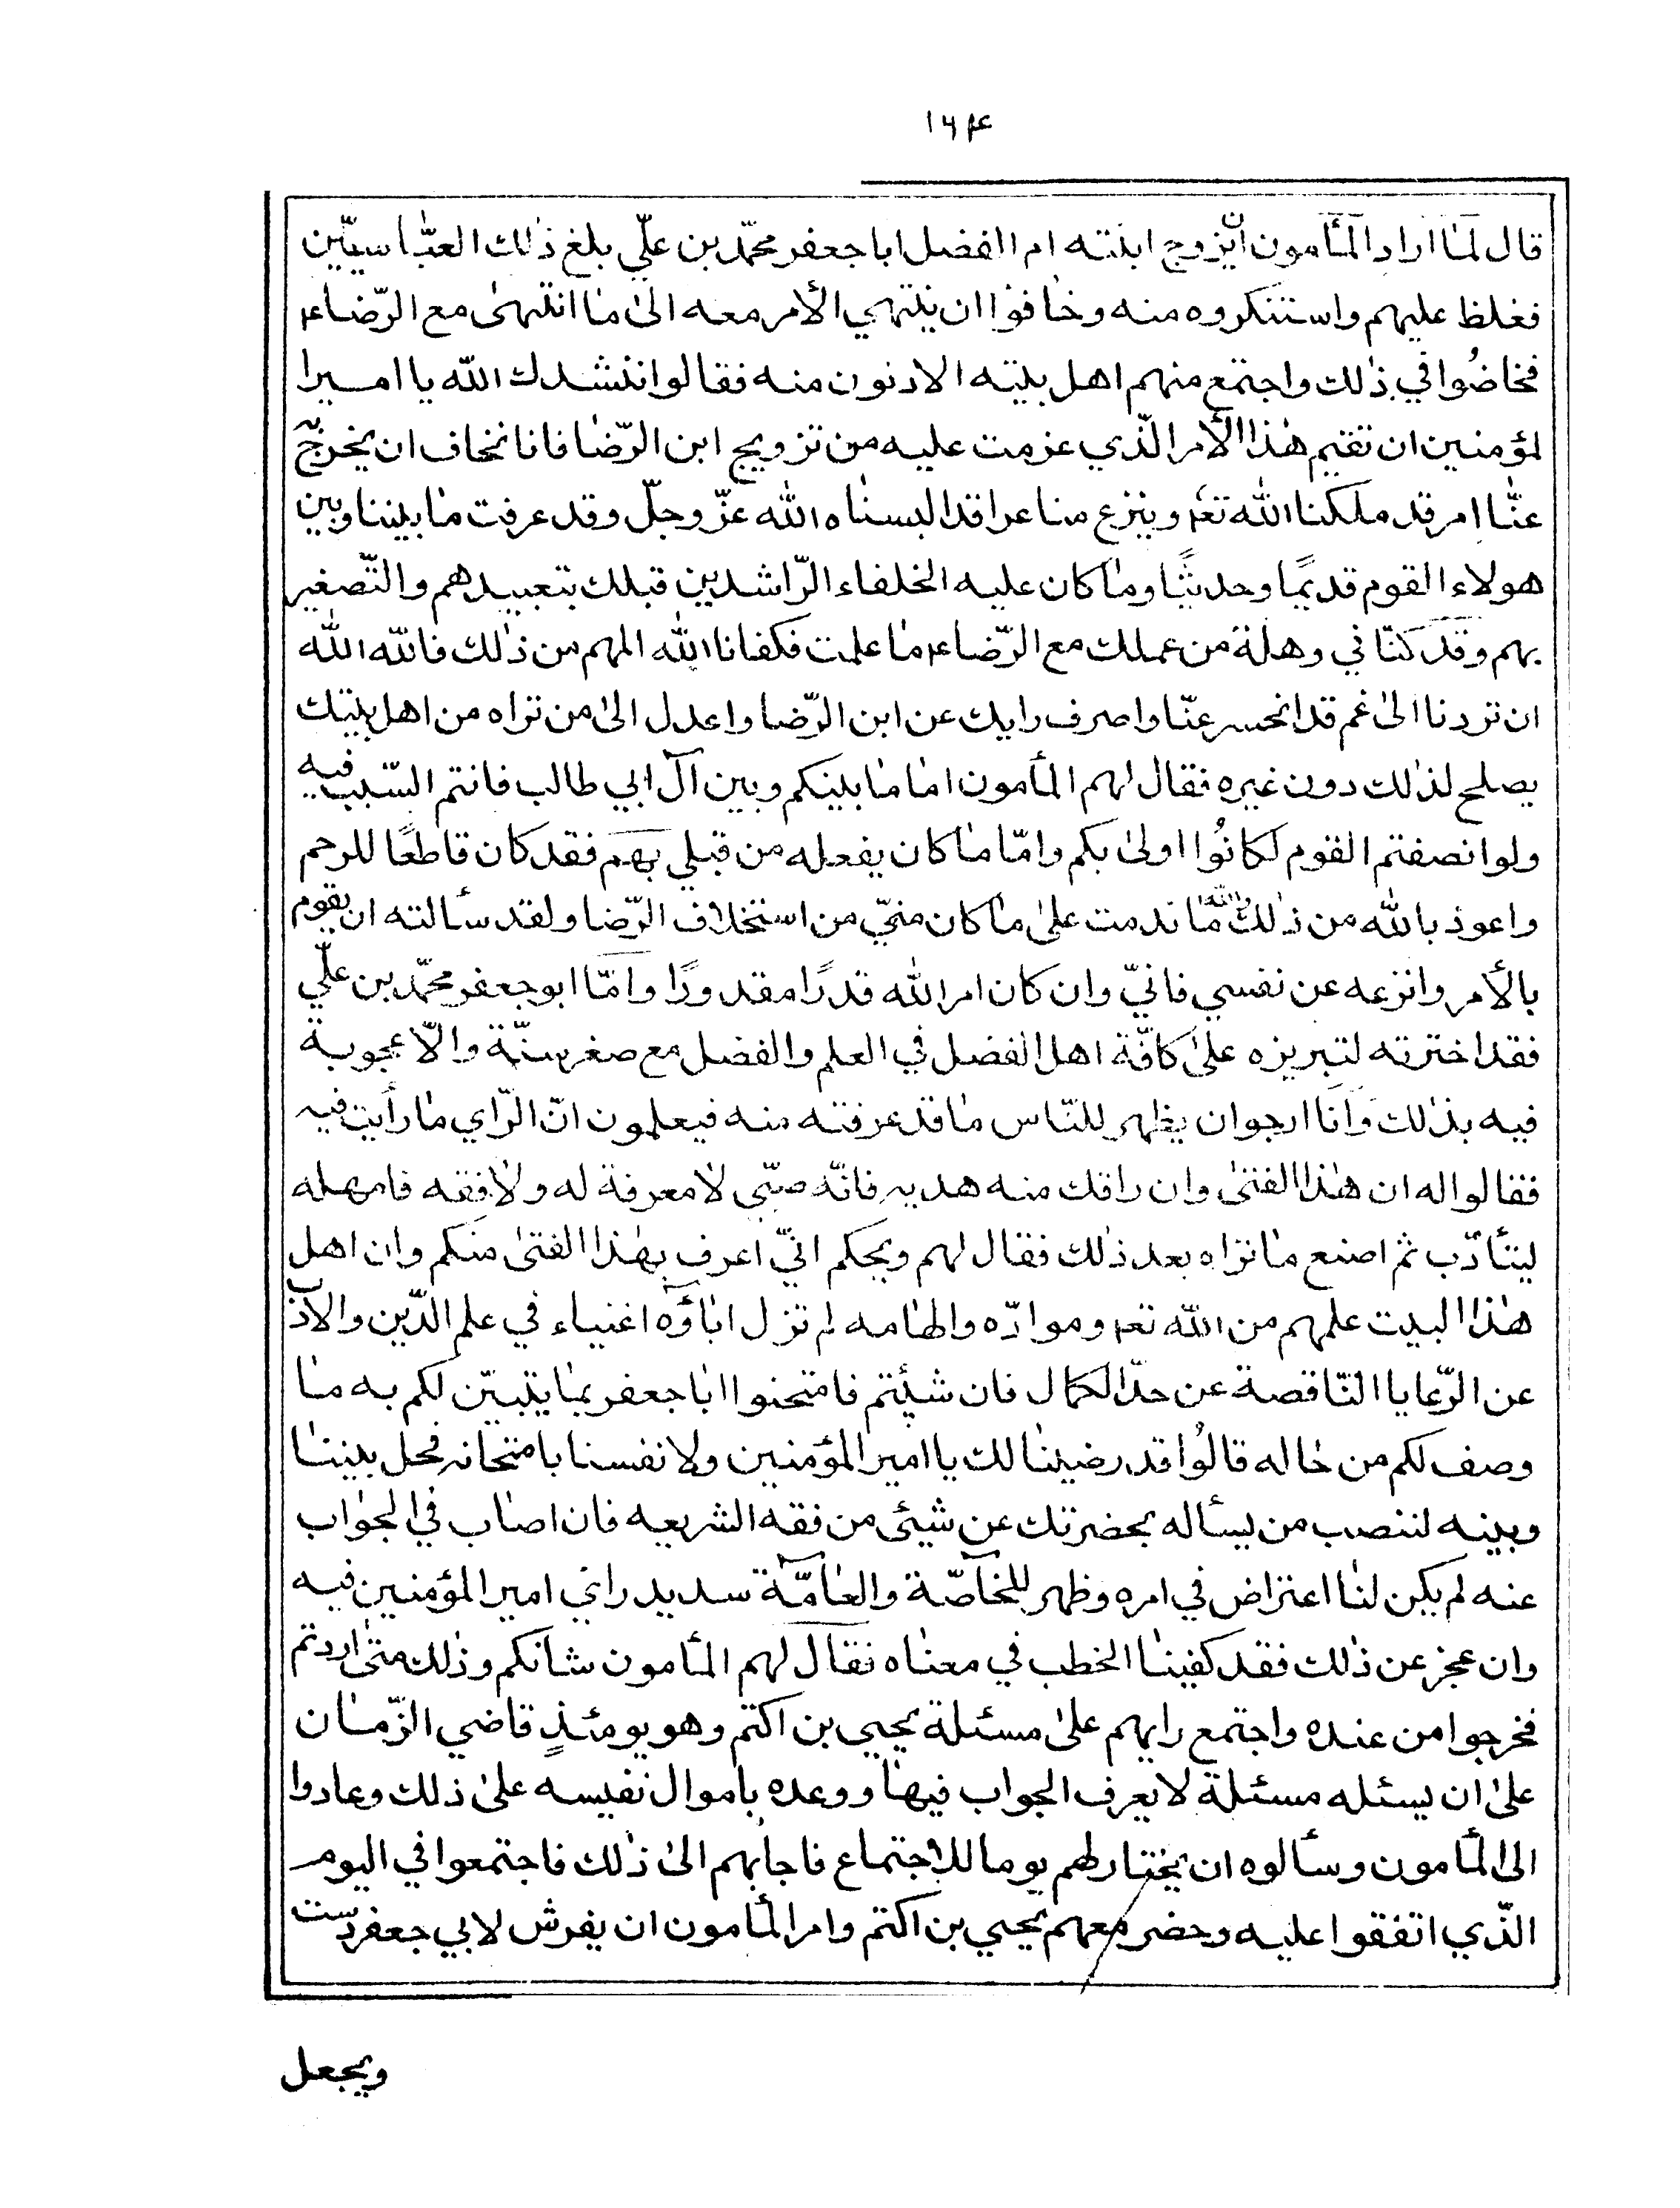 ۱۶۴
قال لمّا اراد المأمون ان يزوج ابنته ام الفضل ابا جعفر محمّد بن علّي بلغ ذٰلك العبّاسيّين
فغلظ عليهم واستنكروه منه وخافوا ان ينتهي الأمر معه الىٰ ما انتهىٰ مع الرّضاء؏
فخاضُوا في ذٰلك واجتمع منهم اهل بيته الادنون منه فقالوا ننشدك اللّه يا اميرا
لمؤمنين ان تقيم هٰذا الأمر الّذي عزمت عليه من تزويج ابن الرّضا فانا نخاف ان يخرج به
عنّا امر قد ملكنا اللّه تع؏ وينزع منا عزا قد البسناه اللّه عزّ وجلّ وقد عرفت ما بيننا وبين
هولاء القوم قديمًا وحديثًا وما كان عليه الخلفاء الرّاشدين قبلك بتعبيدهم والتّصغير
بهم وقد كنّا في وهلة من عملك مع الرّضا؏ ما علمت فكفانا اللّه المهم من ذٰلك فاللّه اللّه
ان تردنا الىٰ غم قد انحسر عنّا واصرف رايك عن ابن الرّضا واعدل الىٰ من تراه من اهل بيتك
يصلح لذٰلك دون غيره فقال لهم المأمون اما ما بينكم وبين آل ابي طالب فانتم السّبب فيه
ولو انصفتم القوم لكانُوا اولىٰ بكم وامّا ما كان يفعله من قبلي بهم فقد كان قاطعًا للرحم
واعوذ باللّه من ذٰلك واللّه ما ندمت علىٰ ما كان منيّ من استخلاف الرّضا ولقد سألته ان يقوم
بالأمر وانزعه عن نفسي فانيّ وان كان امر اللّه قدرًا مقدورًا وامّا ابو جعفر محمّد بن علّي
فقد اخترته لتبريزه علىٰ كافّة اهل الفضل في العلم والفضل مع صغر سنّة والّا عجوبة
فيه بذٰلك وانا ارجوان يظهر للنّاس ما قد عرفته منه فيعلمون انّ الرّاي ما رأيت فيه
فقالوا له ان هٰذا الفتىٰ وان راقك منه هديه فانّه صبّي لا معرفة له ولا فقه فامهله
ليتأدّب ثم اصنع ما تراه بعد ذٰلك فقال لهم ويحكم انيّ اعرف بهٰذا الفتىٰ منكم وان اهل
هٰذا البيت علمهم من اللّه تع؏ وموادّه والهامه لم تزل اباؤه اغنياء في علم الدّين والادب
عن الرّعايا النّاقصة عن حدّ الكمال فان شئتم فامتحنوا ابا جعفر بما يتبيّن لكم به ما
وصف لكم من حاله قالُوا قد رضينا لك يا امير المؤمنين ولانفسنا بامتحانه فحل بيننا
وبينه لننصب من يسأله بحضرتك عن شيئ من فقه الشريعه فان اصاب في الجواب
عنه لم يكن لنا اعتراض في امره وظهر للخاصّة والعامّة سديد راي امير المؤمنين فيه
وان عجز عن ذٰلك فقد كفينا الخطب في معناه فقال لهم المأمون شانكم وذٰلك متىٰ اردتم
فخرجوا من عنده واجتمع رايهم علىٰ مسئلة يحيي بن اكثم وهو يومئذٍ قاضي الزّمان
علىٰ ان يسئله مسئلة لا يعرف الجواب فيها ووعده باموال نفيسه علىٰ ذلك وعادوا
الىٰ المأمون وسألوه ان يختار لهم يوما للاجتماع فاجابهم الىٰ ذٰلك فاجتمعوا في اليوم
الّذي اتفقوا عليه وحضر معهم يحيي بن اكثم وامر المأمون ان يفرش لابي جعفر دست
ويجعل